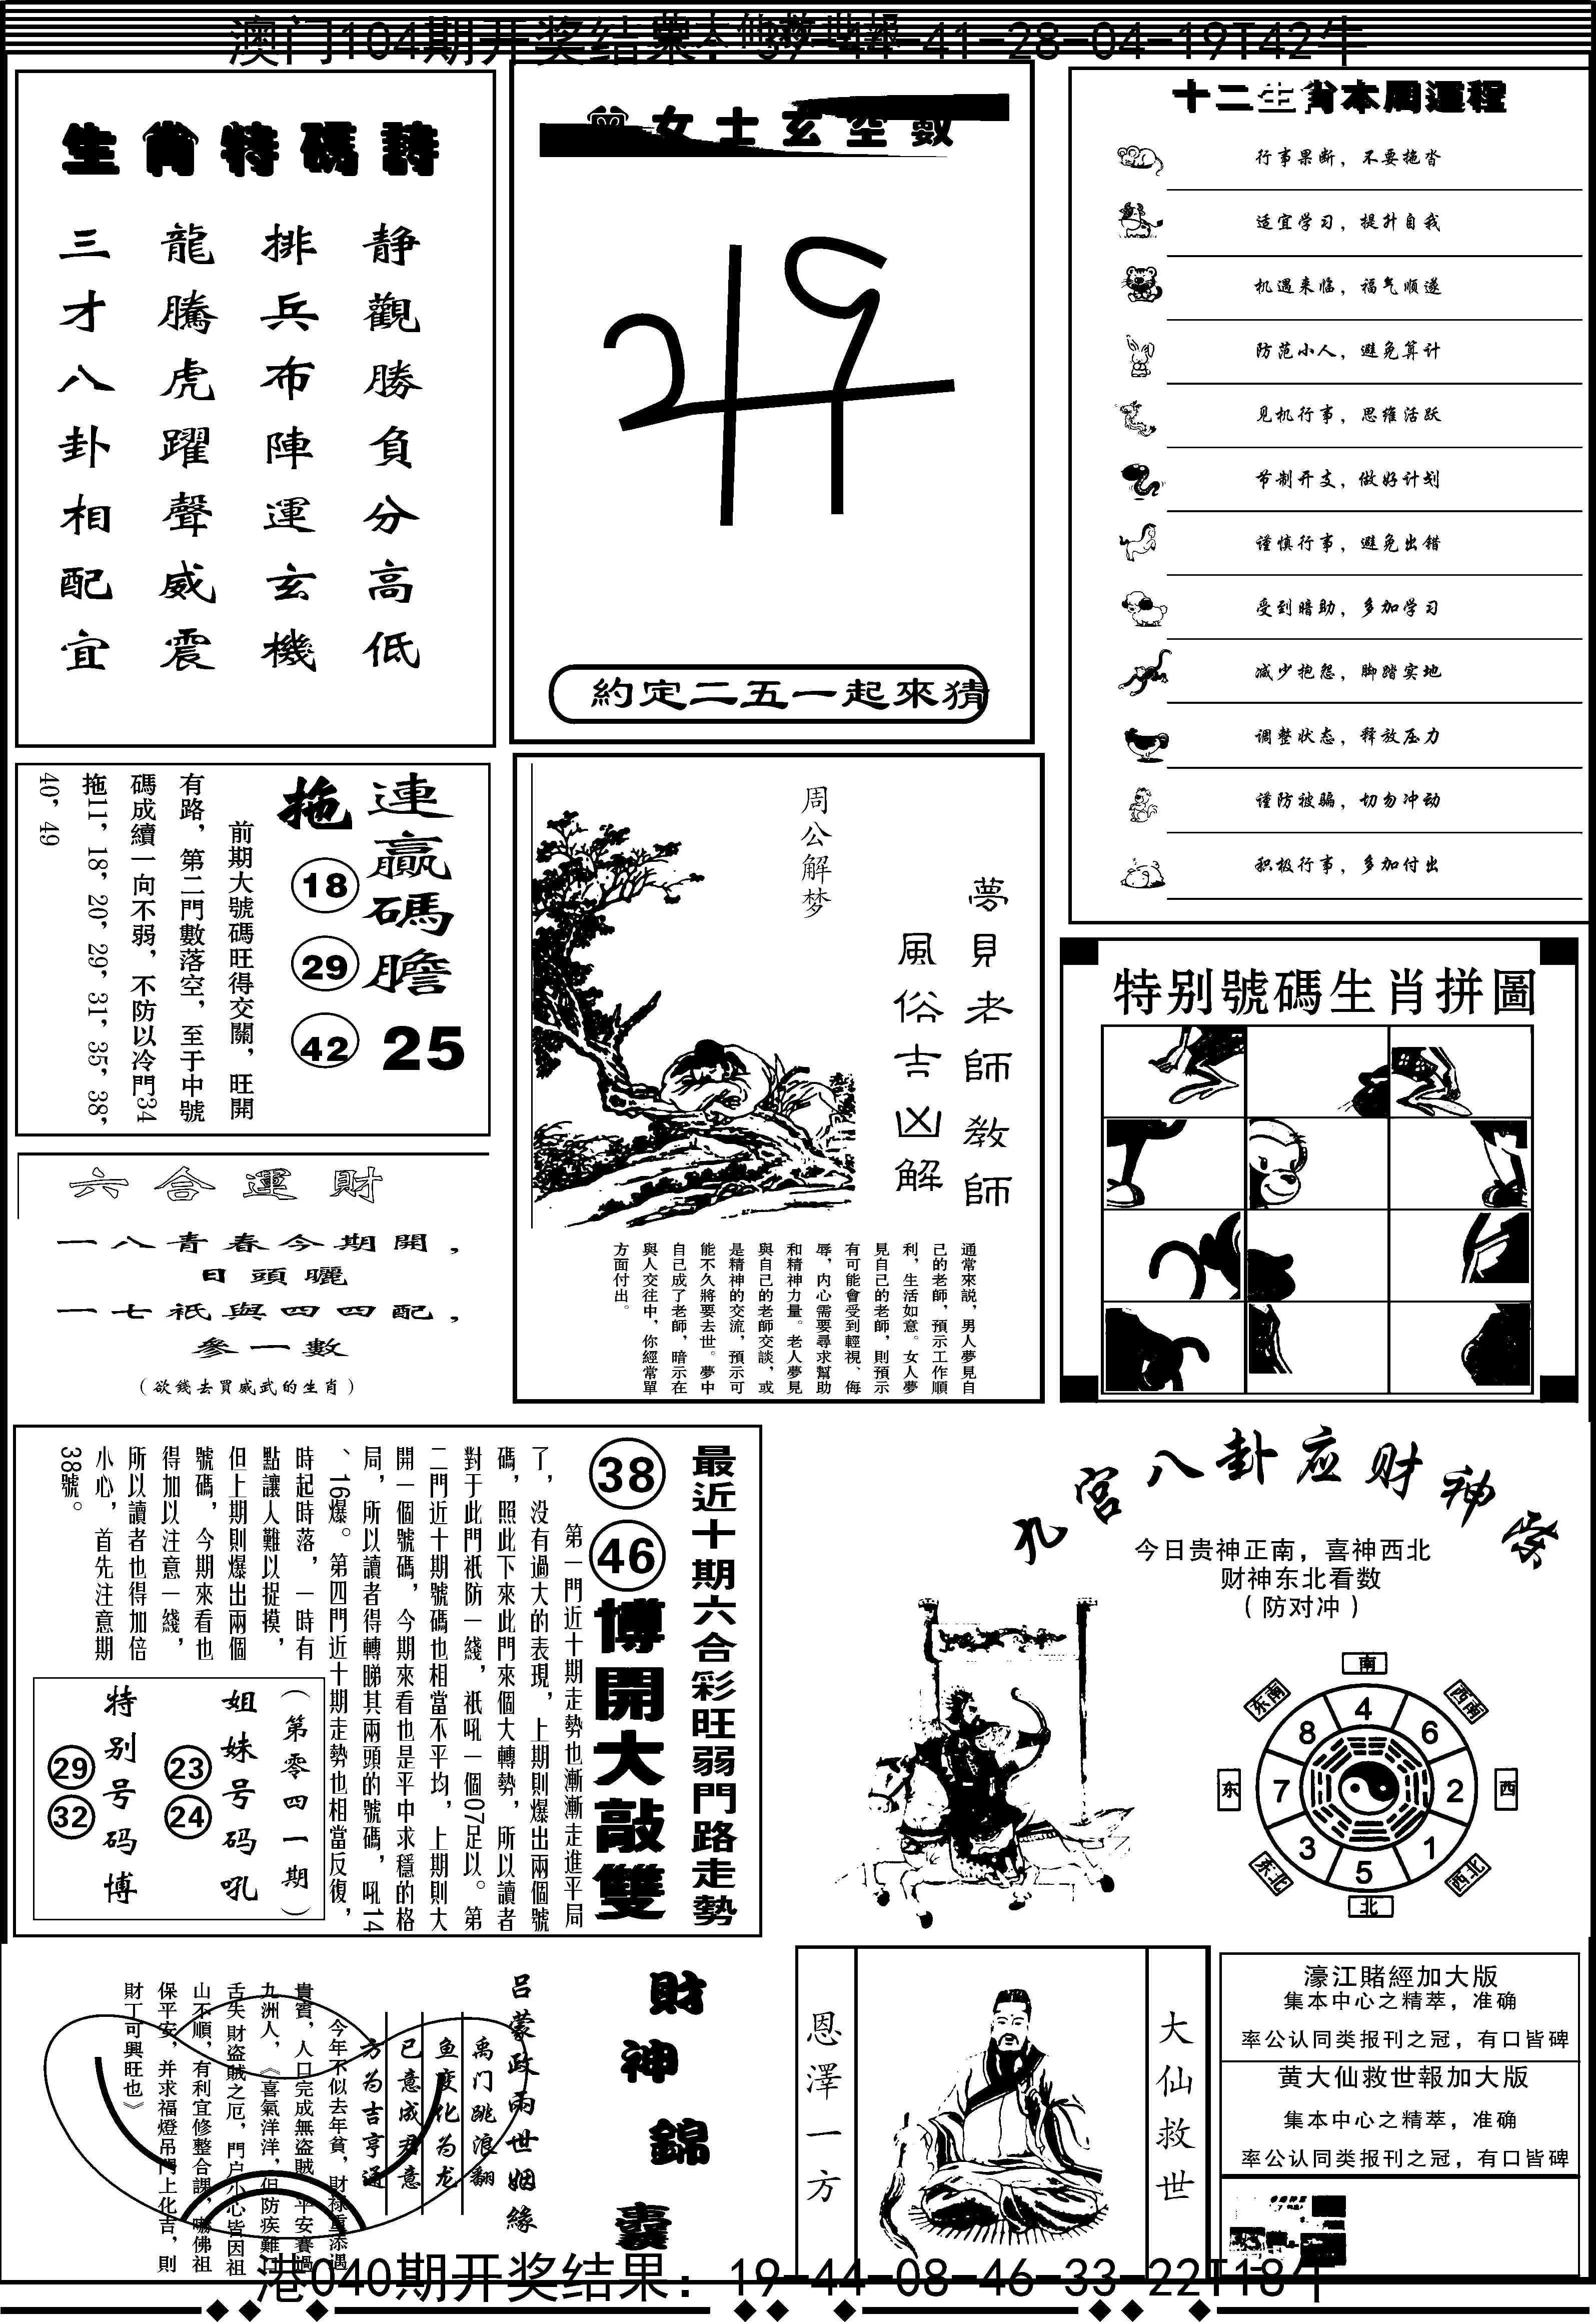 澳门104期开奖结果：39-44-41-28-04-19T42牛
生肖特碼詩
三才八卦相配宜
龍騰虎躍聲威震
排兵布陣運玄機
静觀勝負分高低
曾女士玄空數
約定二五一起來猜
十二生肖本周運程
行事果断，不要拖沓
适宜学习，提升自我
机遇来临，福气顺遂
防范小人，避免算计
见机行事，思维活跃
节制开支，做好计划
谨慎行事，避免出错
受到暗助，多加学习
减少抱怨，脚踏实地
调整状态，释放压力
谨防被骗，切勿冲动
积极行事，多加付出
連贏碼膽
25
拖
18
29
42
前期大號碼旺得交關，旺開
有路，第二門數落空，至于中號
碼成績一向不弱，不防以冷門34
拖11，18，20，29，31，35，38，
40，49
周公解梦
夢見老師教師
風俗吉凶解
通常來説，男人夢見自
己的老師，預示工作順
利，生活如意。女人夢
見自己的老師，則預示
有可能會受到輕視、侮
辱，内心需要尋求幫助
和精神力量。老人夢見
與自己的老師交談，或
是精神的交流，預示可
能不久將要去世。夢中
自己成了老師，暗示在
與人交往中，你經常單
方面付出。
特别號碼生肖拼圖
六合運財
一八青春今期開，
日頭曬
一七衹與四四配，
參一數
（欲錢去買威武的生肖）
最近十期六合彩旺弱門路走勢
38
46
博開大敲雙
第一門近十期走勢也漸漸走進平局
了，没有過大的表現，上期則爆出兩個號
碼，照此下來此門來個大轉勢，所以讀者
對于此門衹防一綫，衹吼一個07足以。第
二門近十期號碼也相當不平均，上期則大
開一個號碼，今期來看也是平中求穩的格
局，所以讀者得轉睇其兩頭的號碼，吼14
、16爆。第四門近十期走勢也相當反復，
時起時落，一時有
點讓人難以捉摸，
但上期則爆出兩個
號碼，今期來看也
得加以注意一綫，
所以讀者也得加倍
小心，首先注意期
38號。
（第零四一期）
姐妹号码吼
23
24
特别号码博
29
32
孔宫八卦应财神祭
今日贵神正南，喜神西北
财神东北看数
（防对冲）
南
东南
西南
东
西
东北
西北
北
4
8
6
7
2
3
1
5
財神錦囊
吕蒙政兩世姻緣
禹门跳浪翻
鱼变化为龙
已意成君意
方为吉亨通
今年不似去年貧，財禄重添遇
貴賓，人口完成無盜賊，平安賽過
九洲人，《喜氣洋洋，但防疾難口
舌失財盜賊之厄，門户小心皆因祖
山不順，有利宜修整合課，嚇佛祖
保平安，并求福燈吊門上化吉，則
財丁可興旺也》
恩澤一方
大仙救世
濠江賭經加大版
集本中心之精萃，准确
率公认同类报刊之冠，有口皆碑
黄大仙救世報加大版
集本中心之精萃，准确
率公认同类报刊之冠，有口皆碑
港040期开奖结果：19-44-08-46-33-22T18牛